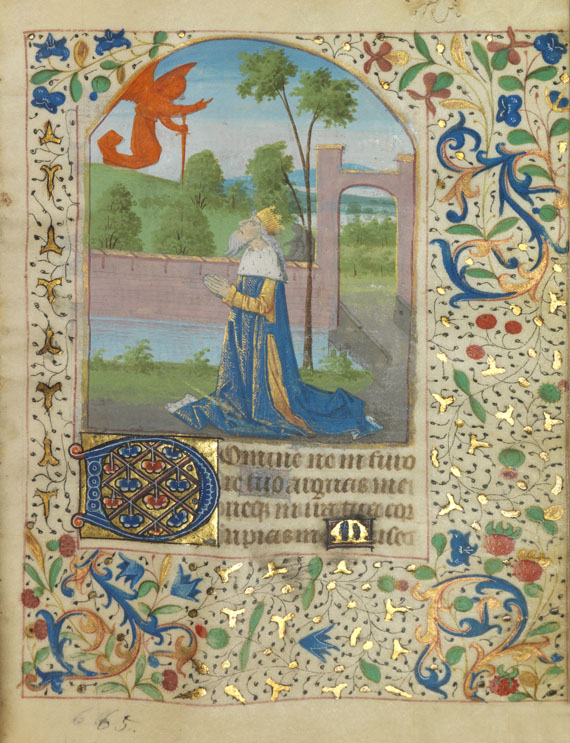 Domine ne in furo
re tuo arguas me
neqꝫ in ira tua cor
ripias me Mise
665.